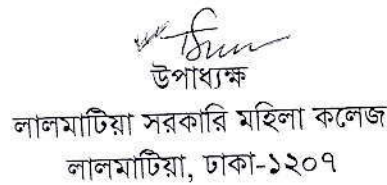 উপাধ্যক্ষ
লালমাটিয়া সরকারি মহিলা কলেজ
লালমাটিয়া, ঢাকা-১২০৭